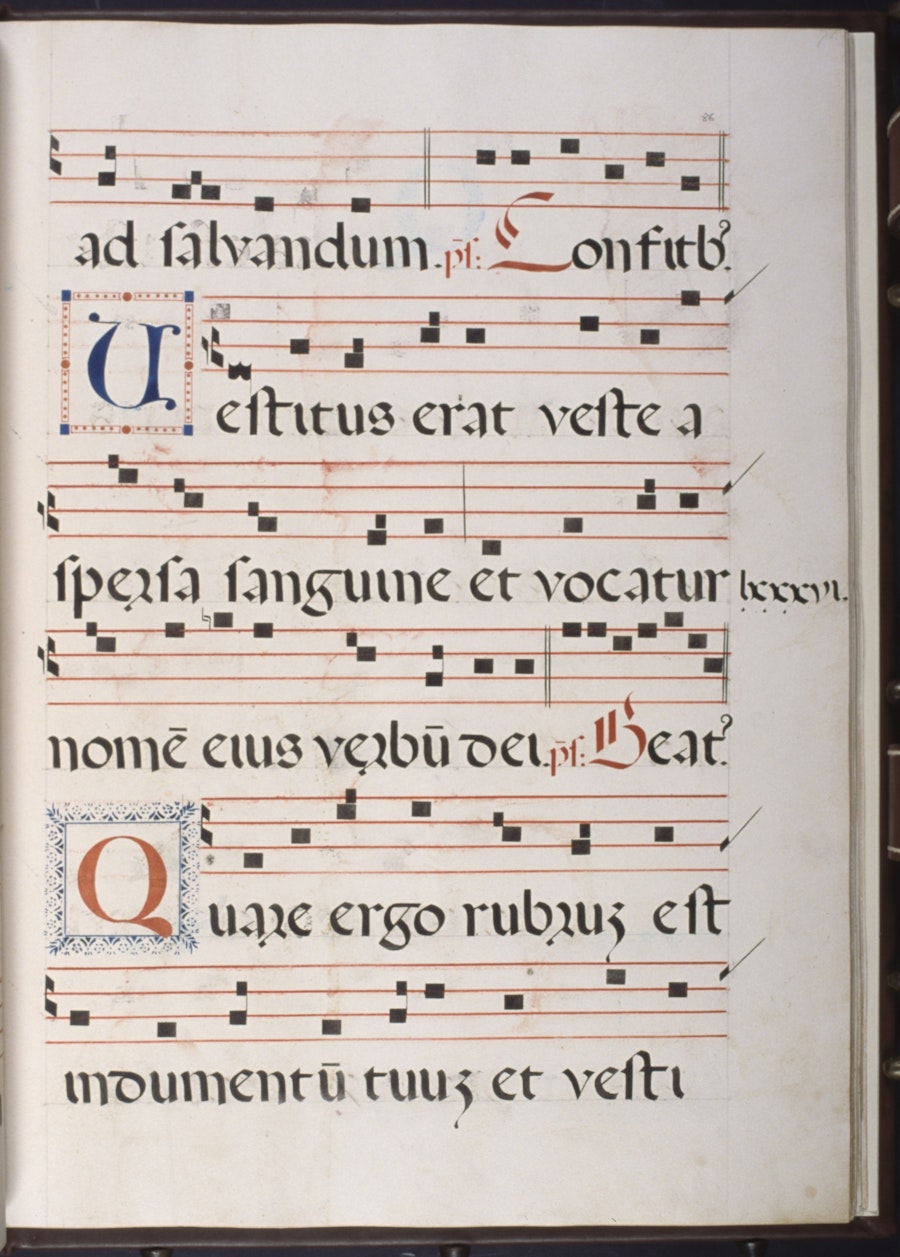 86
ad salvandum. ps̄: Confitb᾽.
Uestitus erat veste a
spersa sanguine et vocatur lxxxvi.
nomē eius verbū dei. ps̄: Beat᾽.
Quare ergo rubruʒ est
indumentū tuuʒ et vesti